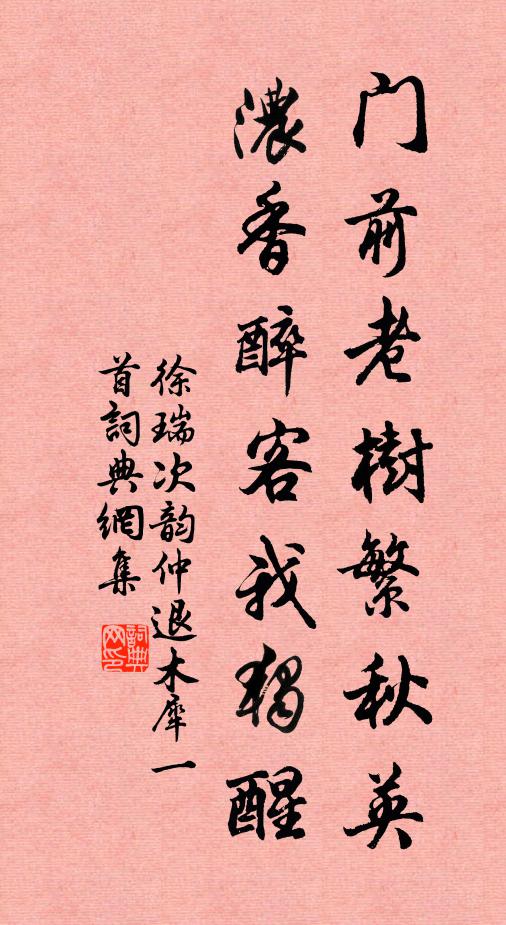 门前老樹繁秋英
濃香醉客我独醒
徐瑞次韵仲退木犀一
首詞典網集
詞典网印